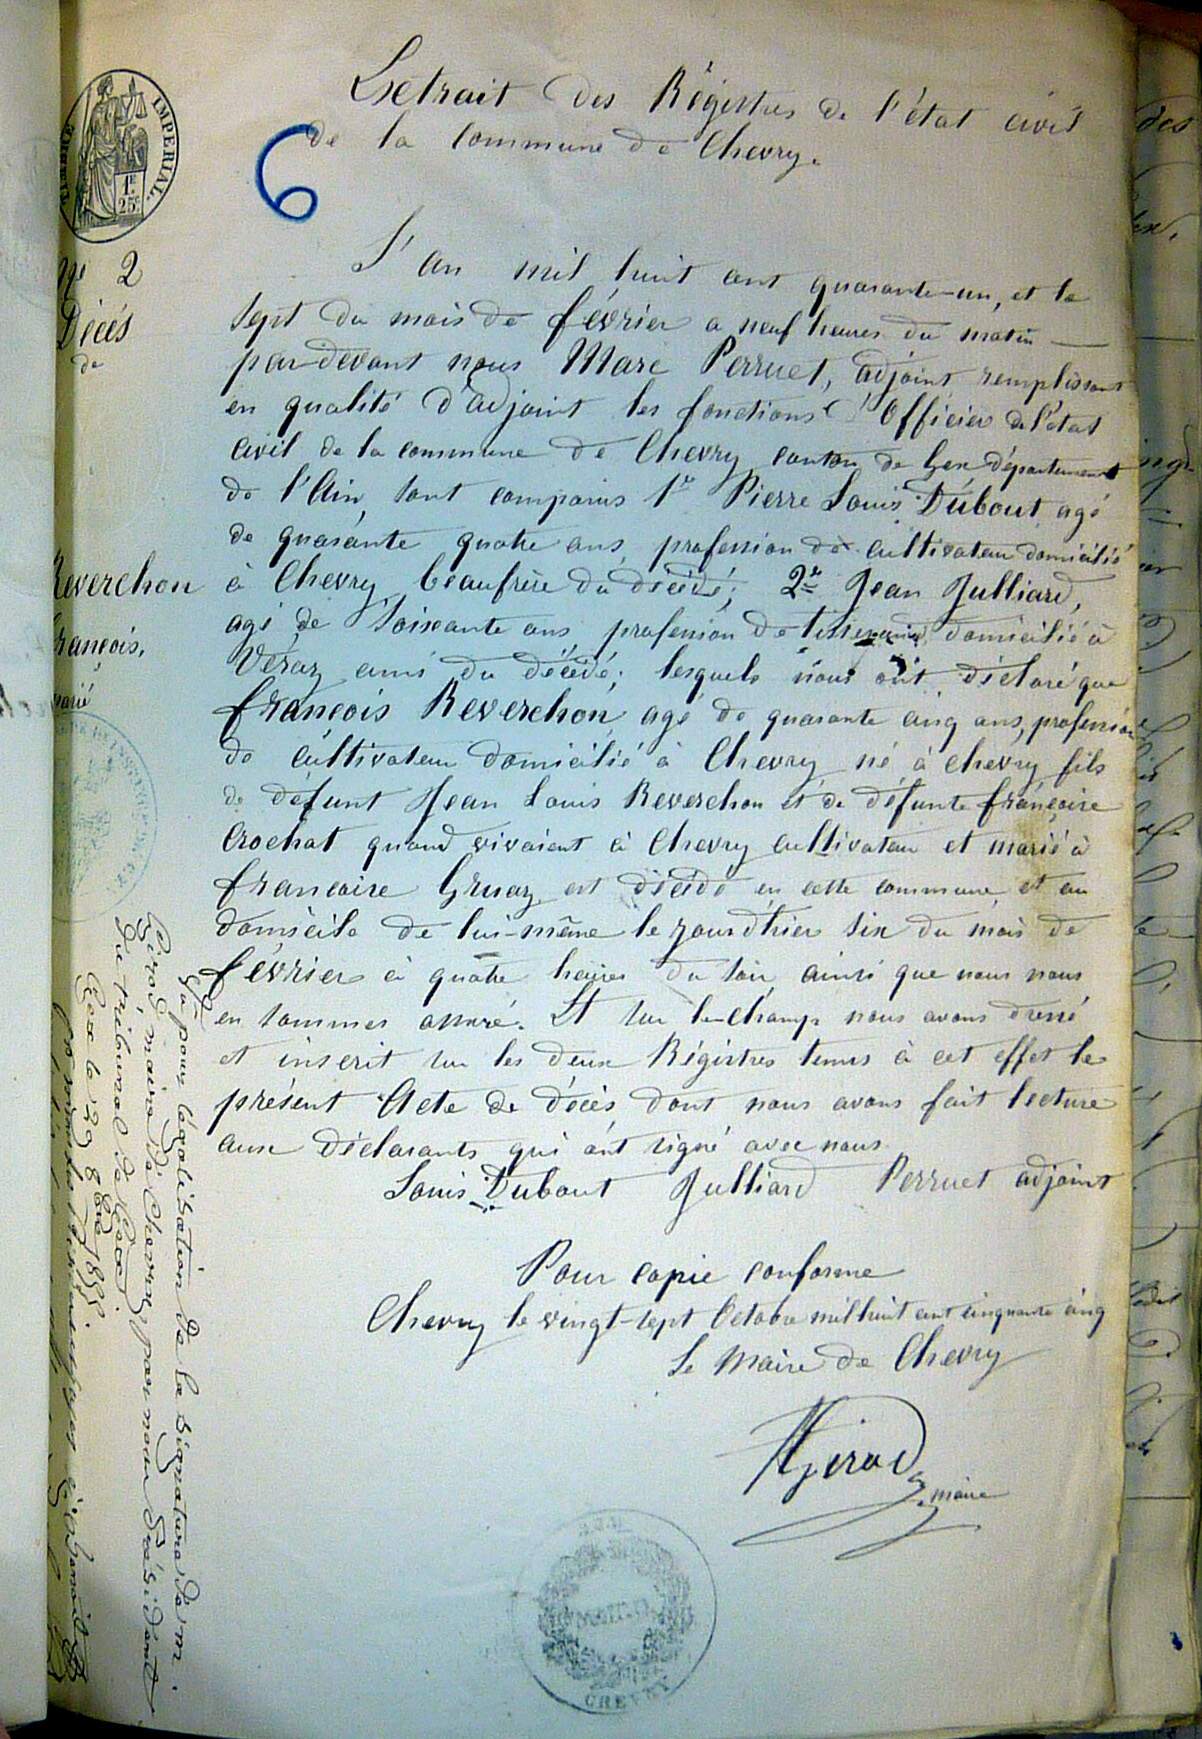 Extrait des Régistres de l'état civil
de la Commune de Chevry.
6
IMPERIAL.
1F
25c
No 2
Décés
de
Reverchon
françois,
marié
L'an mil huit cent quarante-un, et le
sept du mois de février a neuf heures du matin
par-devant nous Marc Perruet, adjoint remplissant
en qualité d'adjoint les fonctions d'Officier de l'état
civil de la commune de Chevry canton de Gex département
de l'Ain, sont comparus 1r Pierre Louis Dubout agé
de quarante quatre ans profession de cultivateur domicilié
à Chevry beaufrère du décédé; 2e Jean Julliard,
agé de soixante ans profession de tisserand domicilié à
Véraz ami du décédé; lesquels nous ont déclaré que
françois Reverchon, agé de quarante cinq ans, profession
de cultivateur domicilié à Chevry né à chevry fils
de défunt Jean Louis Reverchon et de défunte françoise
Crochat quand vivaient à Chevry cultivateur et marié à
françoise Gruaz est décédé en cette commune et au
domicile de lui-même le jour d'hier six du mois de
février à quatre heures du soir, ainsi que nous nous
en sommes assuré. Et sur le-champ nous avons dressé
et inscrit sur les deux Régistres tenus à cet effet le
présent Acte de décès dont nous avons fait lecture
aux déclarants qui ont signé avec nous
Louis Dubout Julliard Perruet adjoint
Pour copie conforme
Chevry le vingt-sept Octobre mil huit cent cinquante cinq
Le Maire de Chevry
Girod
maire
MAIRIE
CHEVRY
Vu pour légalisation de la signature de m.
Girod, maire de Chevry, par nous Président
du tribunal de Gex.
Gex le 29 8bre 1855